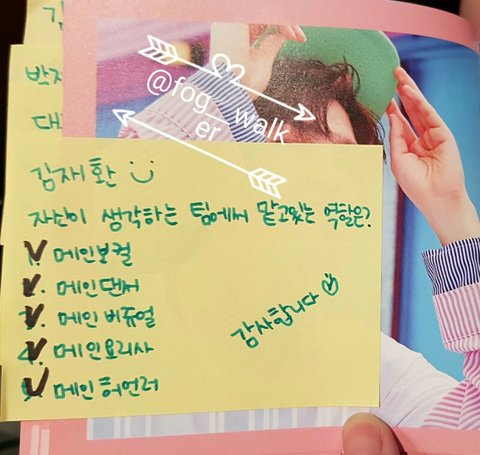 박지
대
@fog__walk
er
김재환
자신이 생각하는 팀에서 맡고있는 역할은?
1. 메인보컬
2. 메인댄서
3. 메인 비쥬얼
4. 메인요리사
5. 메인 허언러
감사합니다